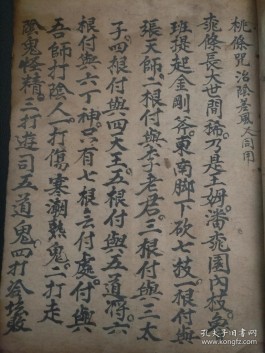 桃條咒治陰差風又同用
桃條長大世間稀乃是王姆潘桃園內枝魯
班提起金剛斧東南脚下砍七技一根付與
張天師二根付與李老君三根付與三太
子四根付與四大王五根付與五道將六
根付與六丁神只有七根無付處付與
吾師打陰人一打傷寒潮熱鬼二打走
陰鬼怪精三打遊司五道鬼四打
孔夫子旧书网